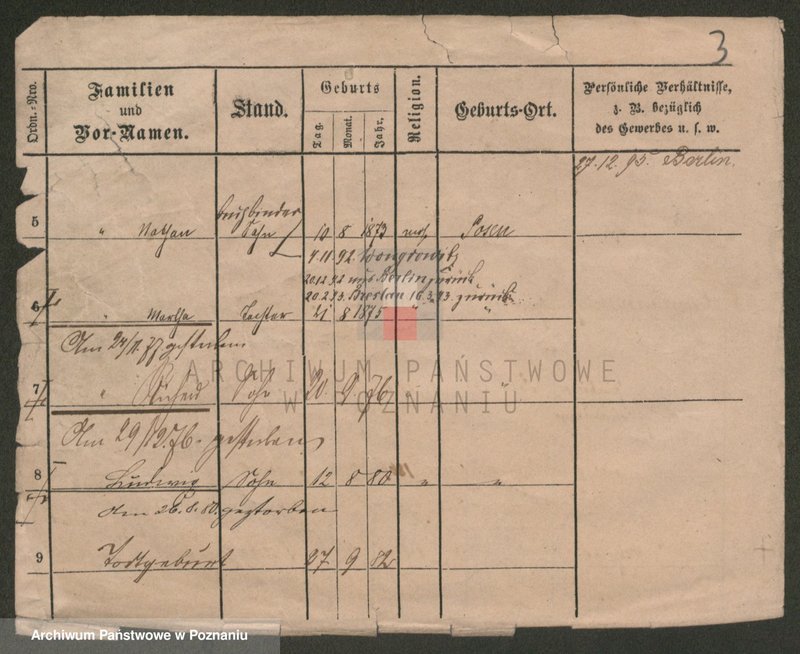 3
Ordn.-Nro.
Familien
und
Vor-Namen.
Stand.
Geburts
Tag.
Monat.
Jahr.
Religion.
Geburts-Ort.
Persönliche Verhältnisse,
z. B. bezüglich
des Gewerbes u. s. w.
27.12.95 Berlin.
buchbinder
5 " Nathan Sohn 10 8 1873 mos. Posen
4.11.92 Wongrowitz
20.12.92 aus Berlin zurück
20.2.93. Breslau 16.3.93 zurück
6 " Martha Tochter 21 8 1875 " "
Am 24/11.77 gestorben
7 " Sohn 20 9 76 "
Am 29/12.76. gestorben
8 Ludwig Sohn 12 8 80 " "
Am 26.8.80. gestorben
9 Todtgeburt 27 9 82
ARCHIWUM PAŃSTWOWE
W POZNANIU
Archiwum Państwowe w Poznaniu